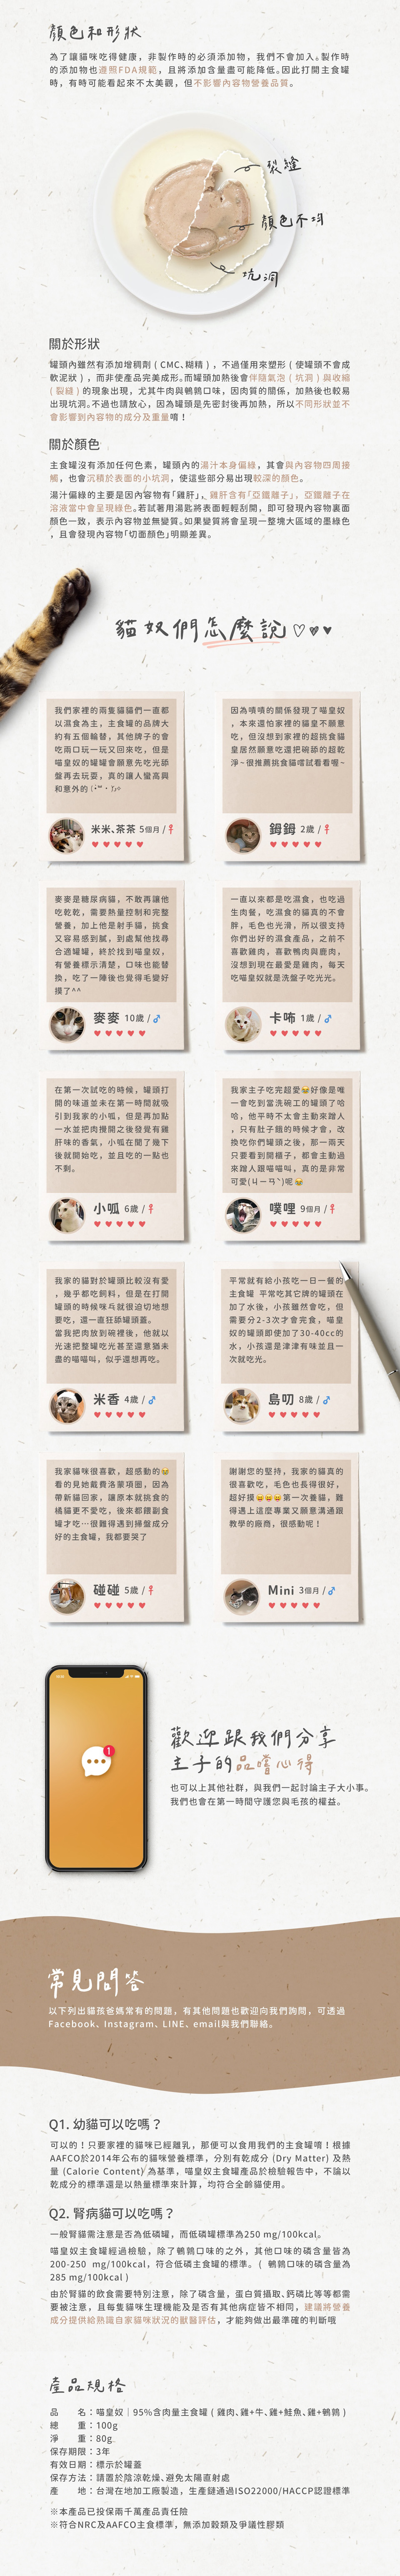 顏色和形狀
為了讓貓咪吃得健康，非製作時的必須添加物，我們不會加入。製作時
的添加物也遵照FDA規範，且將添加含量盡可能降低。因此打開主食罐
時，有時可能看起來不太美觀，但不影響內容物營養品質。
裂縫
顏色不均
坑洞
關於形狀
罐頭內雖然有添加增稠劑 ( CMC、糊精 ) ，不過僅用來塑形 ( 使罐頭不會成
軟泥狀 ) ，而非使產品完美成形。而罐頭加熱後會伴隨氣泡 ( 坑洞 ) 與收縮
( 裂縫 ) 的現象出現，尤其牛肉與鵪鶉口味，因肉質的關係，加熱後也較易
出現坑洞。不過也請放心，因為罐頭是先密封後再加熱，所以不同形狀並不
會影響到內容物的成分及重量唷！
關於顏色
主食罐沒有添加任何色素，罐頭內的湯汁本身偏綠，其會與內容物四周接
觸，也會沉積於表面的小坑洞，使這些部分易出現較深的顏色。
湯汁偏綠的主要是因內容物有「雞肝」，雞肝含有「亞鐵離子」，亞鐵離子在
溶液當中會呈現綠色。若試著用湯匙將表面輕輕刮開，即可發現內容物裏面
顏色一致，表示內容物並無變質。如果變質將會呈現一整塊大區域的墨綠色
，且會發現內容物「切面顏色」明顯差異。
貓奴們怎麼說♡♥♥
我們家裡的兩隻貓貓們一直都
以濕食為主，主食罐的品牌大
約有五個輪替，其他牌子的會
吃兩口玩一玩又回來吃，但是
喵皇奴的罐罐會願意先吃光舔
盤再去玩耍，真的讓人蠻高興
和意外的
米米、茶茶 5個月 / ♀
♥ ♥ ♥ ♥ ♥
因為嘖嘖的關係發現了喵皇奴
，本來還怕家裡的貓皇不願意
吃，但沒想到家裡的超挑食貓
皇居然願意吃還把碗舔的超乾
淨~很推薦挑食貓嚐試看看喔~
鉧鉧 2歲 / ♀
♥ ♥ ♥ ♥ ♥
麥麥是糖尿病貓，不敢再讓他
吃乾乾，需要熱量控制和完整
營養，加上他是射手貓，挑食
又容易感到膩，到處幫他找尋
合適罐罐，終於找到喵皇奴，
有營養標示清楚，口味也能替
換，吃了一陣後也覺得毛變好
摸了^^
麥麥 10歲 / ♂
♥ ♥ ♥ ♥ ♥
一直以來都是吃濕食，也吃過
生肉餐，吃濕食的貓真的不會
胖，毛色也光滑，所以很支持
你們出好的濕食產品，之前不
喜歡雞肉，喜歡鴨肉與鹿肉，
沒想到現在最愛是雞肉，每天
吃喵皇奴就是洗盤子吃光光。
卡咘 1歲 / ♂
♥ ♥ ♥ ♥ ♥
在第一次試吃的時候，罐頭打
開的味道並未在第一時間就吸
引到我家的小呱，但是再加點
一水並把肉攪開之後發覺有雞
肝味的香氣，小呱在聞了幾下
後就開始吃，並且吃的一點也
不剩。
小呱 6歲 / ♀
♥ ♥ ♥ ♥ ♥
我家主子吃完超愛😂好像是唯
一會吃到當洗碗工的罐頭了哈
哈，他平時不太會主動來蹭人
，只有肚子餓的時候才會，改
換吃你們罐頭之後，那一兩天
只要看到開櫃子，都會主動過
來蹭人跟喵喵叫，真的是非常
可愛(ㄐㄧㄢˋ)呢😂
噗哩 9個月 / ♀
♥ ♥ ♥ ♥ ♥
我家的貓對於罐頭比較沒有愛
，幾乎都吃飼料，但是在打開
罐頭的時候咪乓就很迫切地想
要吃，還一直狂舔罐頭蓋。
當我把肉放到碗裡後，他就以
光速把整罐吃光甚至還意猶未
盡的喵喵叫，似乎還想再吃。
米香 4歲 / ♂
♥ ♥ ♥ ♥ ♥
平常就有給小孩吃一日一餐的
主食罐 平常吃其它牌的罐頭在
加了水後，小孩雖然會吃，但
需要分2-3次才會完食，喵皇
奴的罐頭即使加了30-40cc的
水，小孩還是津津有味並且一
次就吃光。
島叨 8歲 / ♂
♥ ♥ ♥ ♥ ♥
我家貓咪很喜歡，超感動的😂
看的見她戴費洛蒙項圈，因為
帶新貓回家，讓原本就挑食的
橘貓更不愛吃，後來都餵副食
罐才吃…很難得遇到掃盤成分
好的主食罐，我都要哭了
碰碰 5歲 / ♀
♥ ♥ ♥ ♥ ♥
謝謝您的堅持，我家的貓真的
很喜歡吃，毛色也長得很好，
超好摸😄😄😄第一次養貓，難
得遇上這麼專業又願意溝通跟
教學的廠商，很感動呢！
Mini 3個月 / ♂
♥ ♥ ♥ ♥ ♥
1
歡迎跟我們分享
主子的品嚐心得
也可以上其他社群，與我們一起討論主子大小事。
我們也會在第一時間守護您與毛孩的權益。
常見問答
以下列出貓孩爸媽常有的問題，有其他問題也歡迎向我們詢問，可透過
Facebook、Instagram、LINE、email與我們聯絡。
Q1. 幼貓可以吃嗎？
可以的！只要家裡的貓咪已經離乳，那便可以食用我們的主食罐唷！根據
AAFCO於2014年公布的貓咪營養標準，分別有乾成分 (Dry Matter) 及熱
量 (Calorie Content) 為基準，喵皇奴主食罐產品於檢驗報告中，不論以
乾成分的標準還是以熱量標準來計算，均符合全齡貓使用。
Q2. 腎病貓可以吃嗎？
一般腎貓需注意是否為低磷罐，而低磷罐標準為250 mg/100kcal。
喵皇奴主食罐經過檢驗，除了鵪鶉口味的之外，其他口味的磷含量皆為
200-250 mg/100kcal，符合低磷主食罐的標準。 ( 鵪鶉口味的磷含量為
285 mg/100kcal )
由於腎貓的飲食需要特別注意，除了磷含量，蛋白質攝取、鈣磷比等等都需
要被注意，且每隻貓咪生理機能及是否有其他病症皆不相同，建議將營養
成分提供給熟識自家貓咪狀況的獸醫評估，才能夠做出最準確的判斷哦
產品規格
品　　名：喵皇奴｜95%含肉量主食罐 ( 雞肉、雞+牛、雞+鮭魚、雞+鵪鶉 )
總　　重：100g
淨　　重：80g
保存期限：3年
有效日期：標示於罐蓋
保存方法：請置於陰涼乾燥、避免太陽直射處
產　　地：台灣在地加工廠製造，生產鏈通過ISO22000/HACCP認證標準
※本產品已投保兩千萬產品責任險
※符合NRC及AAFCO主食標準，無添加穀類及爭議性膠類